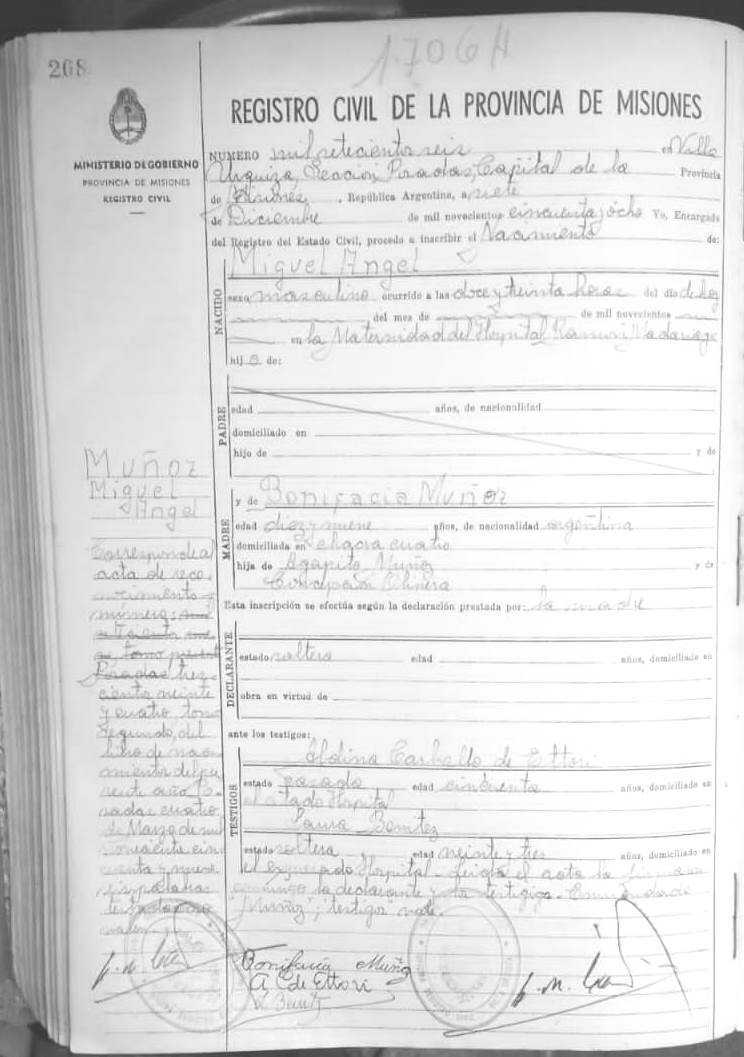 268
1706 H
REGISTRO CIVIL DE LA PROVINCIA DE MISIONES
MINISTERIO DE GOBIERNO
PROVINCIA DE MISIONES
REGISTRO CIVIL
NUMERO mil setecientos seis en Villa
Urquiza, Sección Posadas, Capital de la Provincia
de Misiones, República Argentina, a siete
de Diciembre de mil novecientos cincuenta y ocho Yo, Encargado
del Registro del Estado Civil, procedo a inscribir el Nacimiento de:
NACIDO
Miguel Angel
sexo masculino ocurrido a las doce y treinta horas del día de hoy
del mes de de mil novecientos
en la Maternidad del Hospital Ramón Madariaga
hijo de:
PADRE
edad años, de nacionalidad
domiciliado en
hijo de y de
MADRE
y de Bonifacia Muñoz
edad diez y nueve años, de nacionalidad argentina
domiciliada en chacra cuatro
hija de Agapito Muñoz y de
Concepción
Esta inscripción se efectúa según la declaración prestada por: la madre
DECLARANTE
estado soltera edad años, domiciliado en
obra en virtud de
ante los testigos:
TESTIGOS
Carballo de Ettori
estado casada edad cincuenta años, domiciliado en
el citado Hospital
Laura Benitez
estado soltera edad veinte y tres años, domiciliado en
el expresado Hospital. Leída el acta la firmaron
conmigo la declarante y los testigos. Enmendado
"Muñoz"; "testigos" vale.
Muñoz
Miguel
Angel
Corresponde al
acta de reco-
nocimiento
número:
Posadas tres-
cientos veinte
y cuatro tomo
segundo, del
libro de naci-
mientos del pre-
sente año. Po-
sadas cuatro
de Marzo de mil
novecientos cin-
cuenta y nueve
Bonifacia Muñoz
A. C. de Ettori
L. Benitez